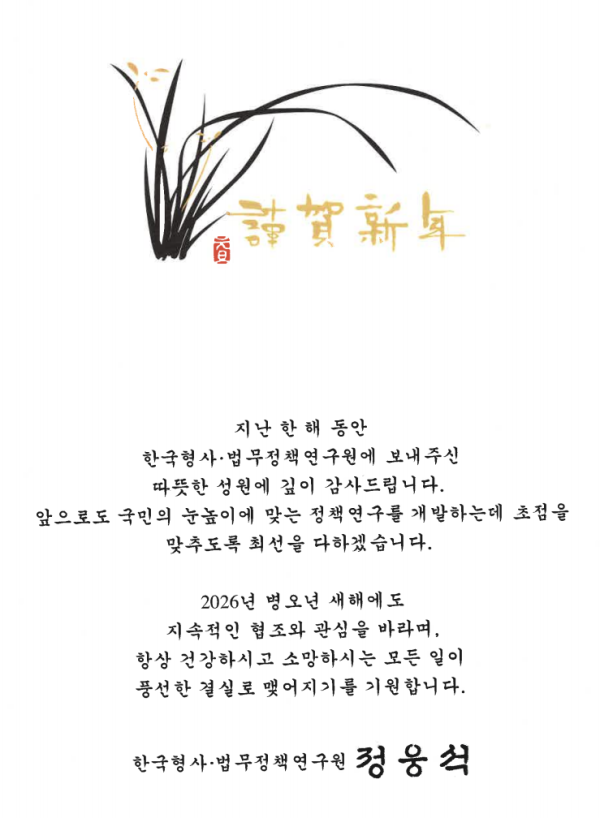 謹賀新年
元旦
지난 한 해 동안
한국형사·법무정책연구원에 보내주신
따뜻한 성원에 깊이 감사드립니다.
앞으로도 국민의 눈높이에 맞는 정책연구를 개발하는데 초점을
맞추도록 최선을 다하겠습니다.
2026년 병오년 새해에도
지속적인 협조와 관심을 바라며,
항상 건강하시고 소망하시는 모든 일이
풍선한 결실로 맺어지기를 기원합니다.
한국형사·법무정책연구원 정웅석